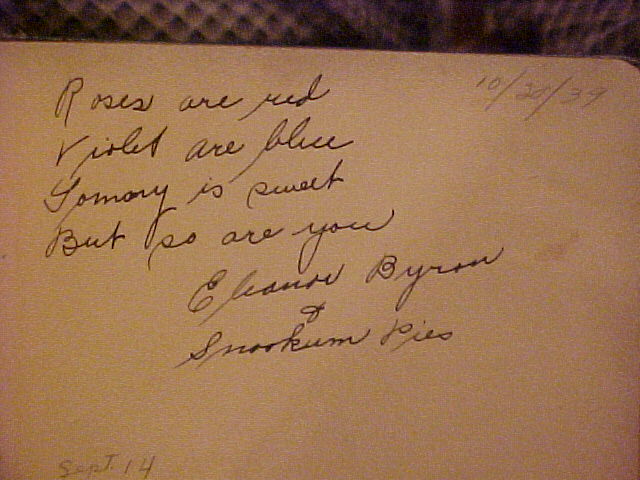 Roses are red
10/20/39
Violet are blue
Tomary is sweet
But so are you
Eleanor Byron
&
Snookum Pies
Sept. 14